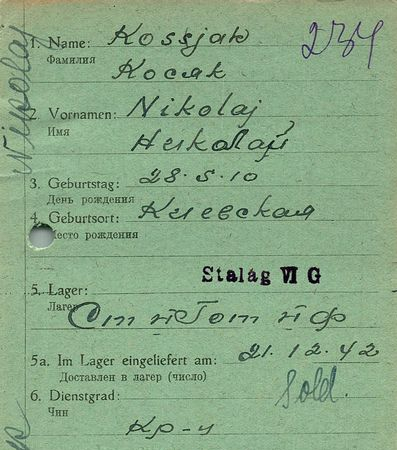 Nikolaj
1. Name: Kossjak
Фамилия
Косяк
234
2. Vornamen: Nikolaj
Имя
Николай
3. Geburtstag: 28.5.10
День рождения
4. Geburtsort: Киевская
Место рождения
Stalag VI G
5. Lager:
Лагер
5a. Im Lager eingeliefert am: 21.12.42
Доставлен в лагер (число)
6. Dienstgrad: Sold.
Чин
Кр-ц